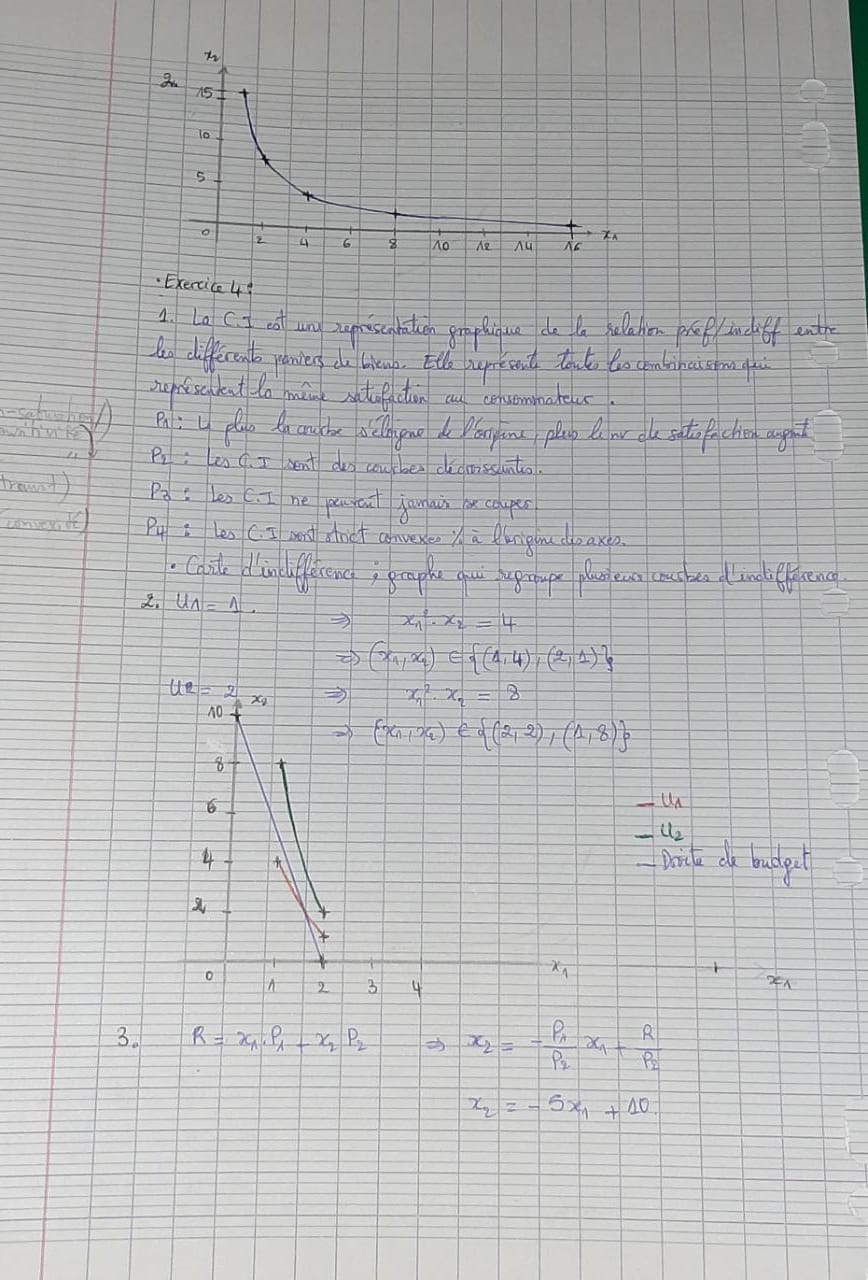 x₂
2.
15
10
5
0 2 4 6 8 10 12 14 16 x₁
• Exercice 4 :
1. La C.I est une représentation graphique de la relation préf/indiff entre
les différents paniers de biens. Elle représente toutes les combinaisons qui
représentent la même satisfaction au consommateur.
P1 : + plus la courbe s'éloigne de l'origine, plus le nv de satisfaction augmt
P2 : Les C.I sont des courbes décroissantes.
transit)
P3 : Les C.I ne peuvent jamais se couper
convexité)
P4 : Les C.I sont strict convexes % à l'origine des axes.
• Carte d'indifférence ; graphe qui regroupe plusieurs courbes d'indifférence.
2. U1 = 1. ⇒ x₁². x₂ = 4
⇒ (x₁, x₂) ∈ {(1,4), (2,1)}
U2 = 2 ⇒ x₁². x₂ = 8
⇒ (x₁, x₂) ∈ {(2,2), (1,8)}
x₂
10
8
6
4
2
— U₁
— U₂
— Droite de budget
0 1 2 3 4 x₁ x₁
3. R = x₁.P₁ + x₂ P₂ ⇒ x₂ = - P₁/P₂ x₁ + R/P₂
x₂ = - 5x₁ + 10.